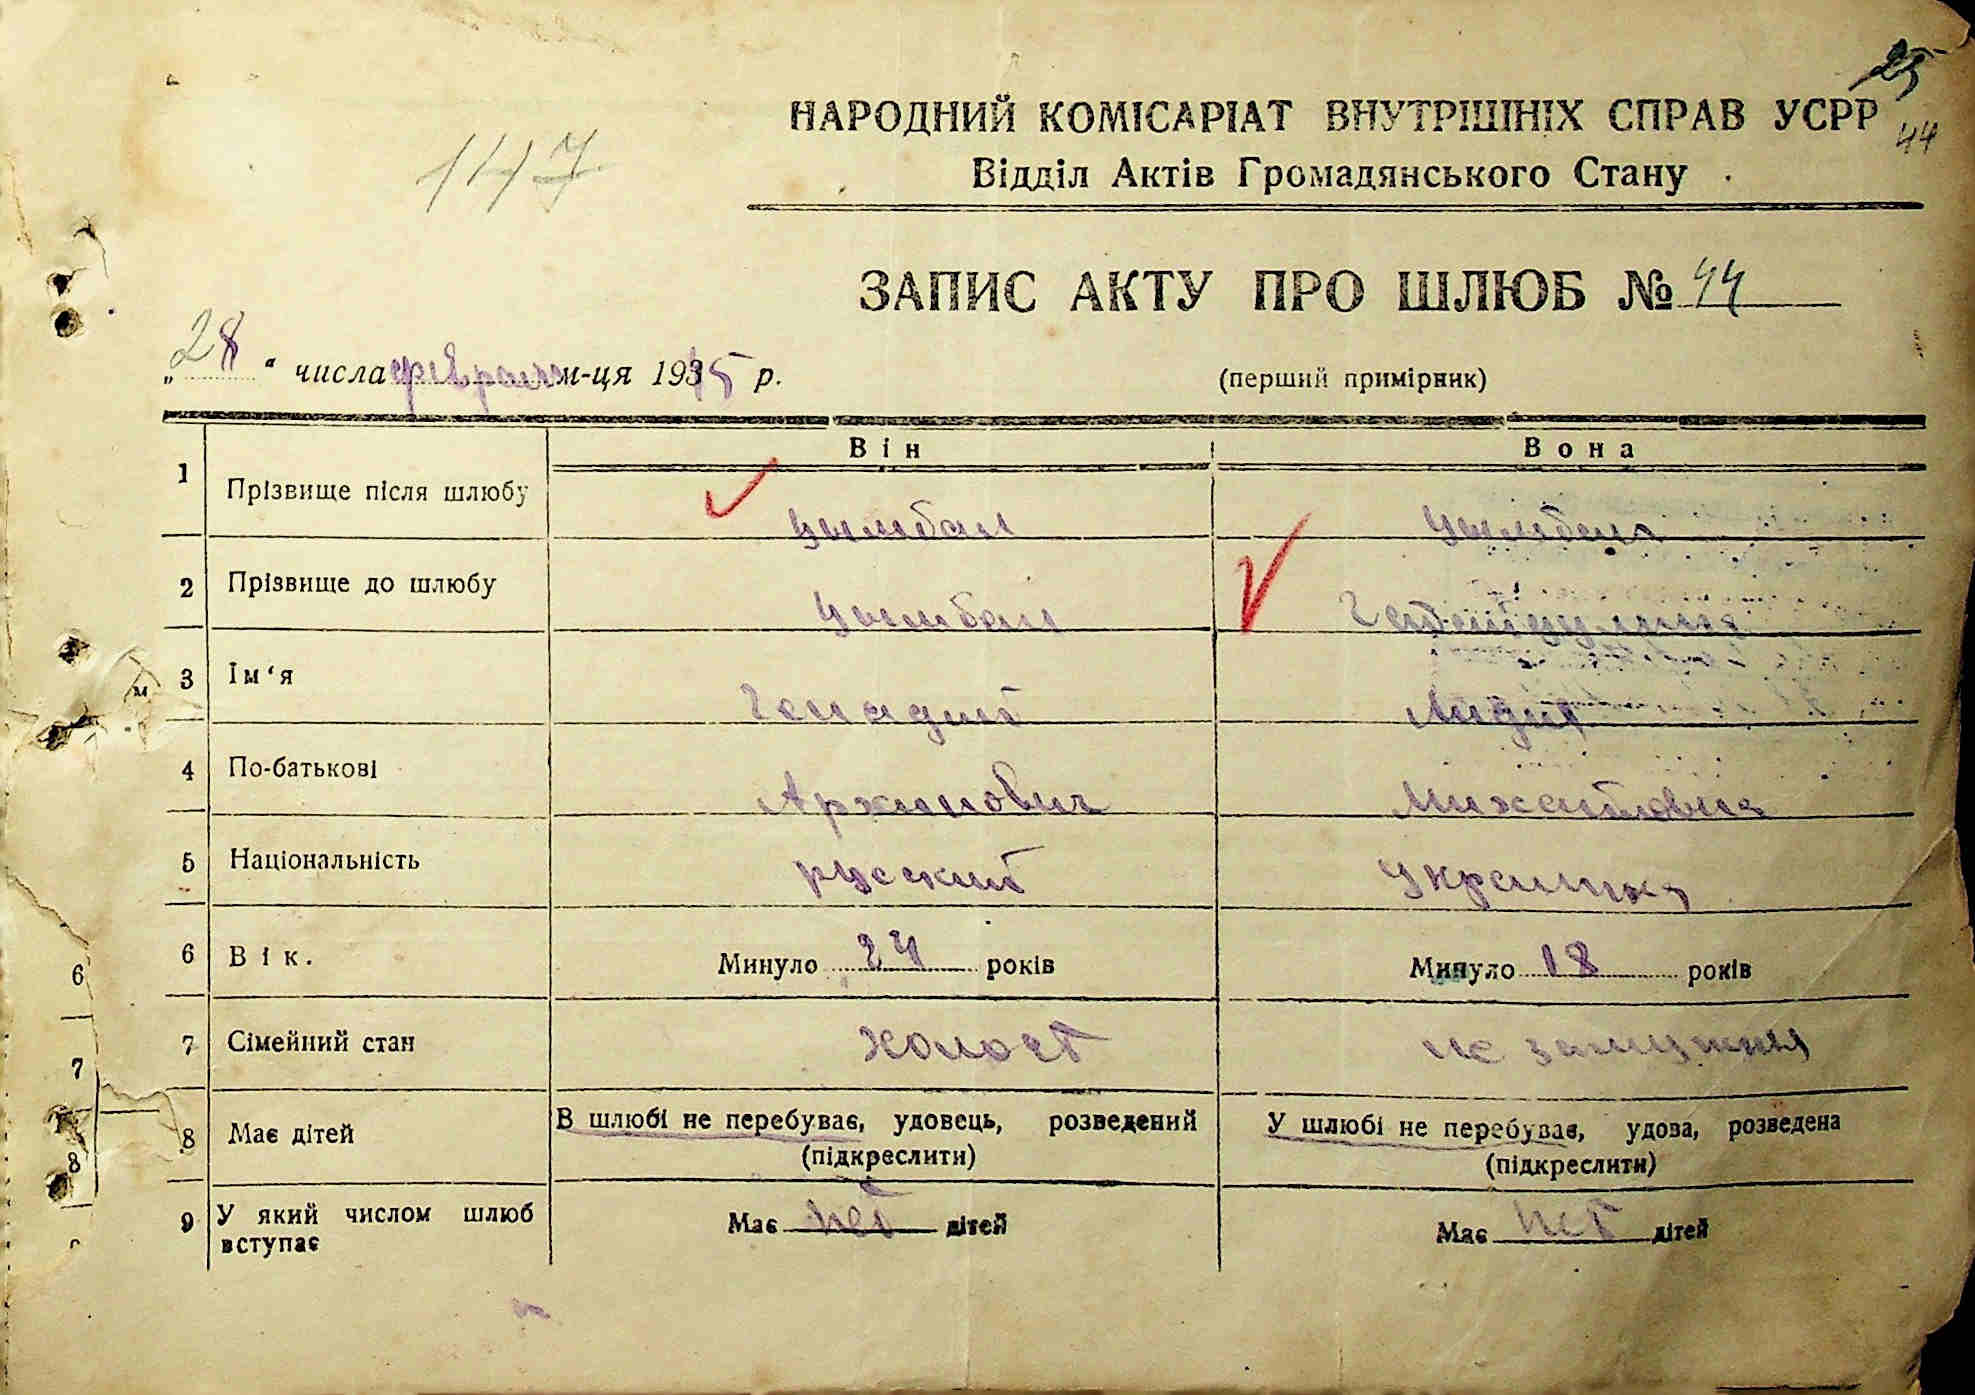 25
НАРОДНИЙ КОМІСАРІАТ ВНУТРІШНІХ СПРАВ УСРР
44
147
Відділ Актів Громадянського Стану
ЗАПИС АКТУ ПРО ШЛЮБ № 44
„28“ числа февраля м-ця 1935 р.
(перший примірник)
Він Вона
1 Прізвище після шлюбу Цымбал Цымбал
2 Прізвище до шлюбу Цымбал
3 Ім‘я Генадий Лидия
4 По-батькові Архипович Михайловна
5 Національність русский украинка
6 Вік. Минуло 24 років Минуло 18 років
7 Сімейний стан холост не замужняя
8 Має дітей В шлюбі не перебуває, удовець, розведений У шлюбі не перебуває, удова, розведена
(підкреслити) (підкреслити)
9 У який числом шлюб вступає Має нет дітей Має нет дітей
6
7
8